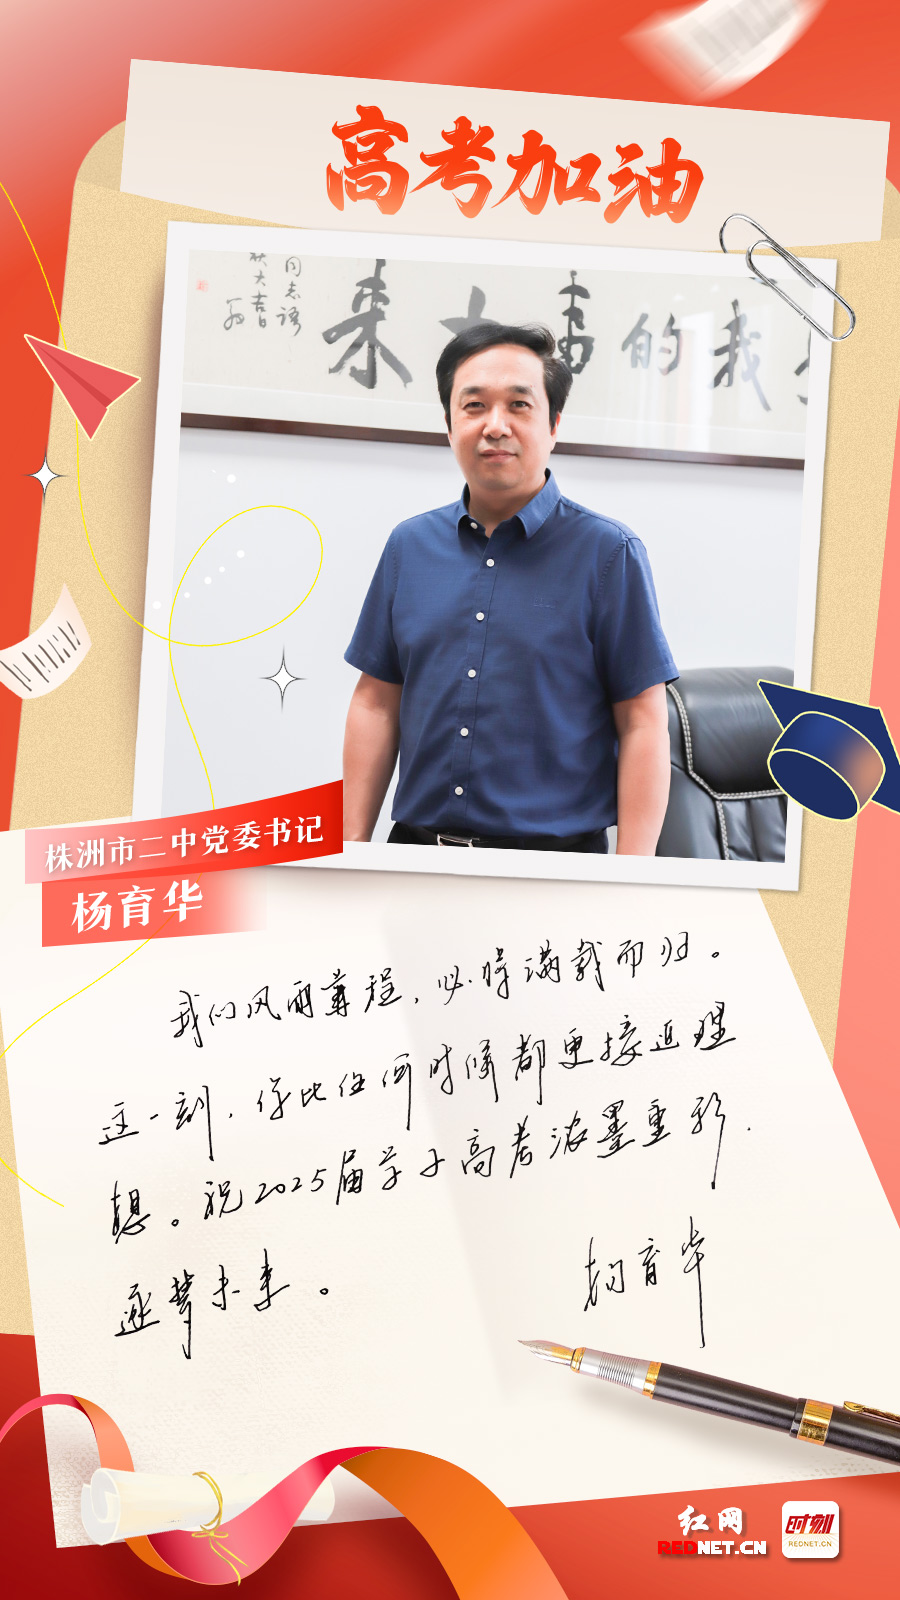 高考加油
同志语
秋大吉
来 的我
株洲市二中党委书记
杨育华
我们风雨兼程，必将满载而归。
这一刻，你比任何时候都更接近理
想。祝2025届学子高考浓墨重彩，
逐梦未来。
杨育华
红网
REDNET.CN
时刻
REDNET.CN